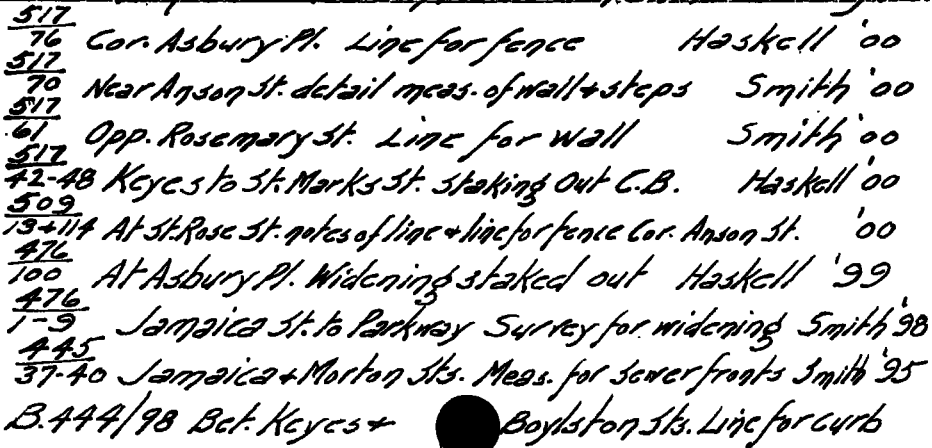 517
76 Cor. Asbury Pl. Line for fence Haskell '00
517
70 Near Anson St. detail meas. of wall + steps Smith '00
517
61 Opp. Rosemary St. Line for wall Smith '00
517
42-48 Keyes to St. Marks St. Staking Out C.B. Haskell '00
509
13+114 At St. Rose St. notes of line + line for fence Cor. Anson St. '00
476
100 At Asbury Pl. Widening staked out Haskell '99
476
1-9 Jamaica St. to Parkway Survey for widening Smith '98
445
37-40 Jamaica + Morton Sts. Meas. for sewer fronts Smith '95
B.444/98 Bet. Keyes + Boylston Sts. Line for curb